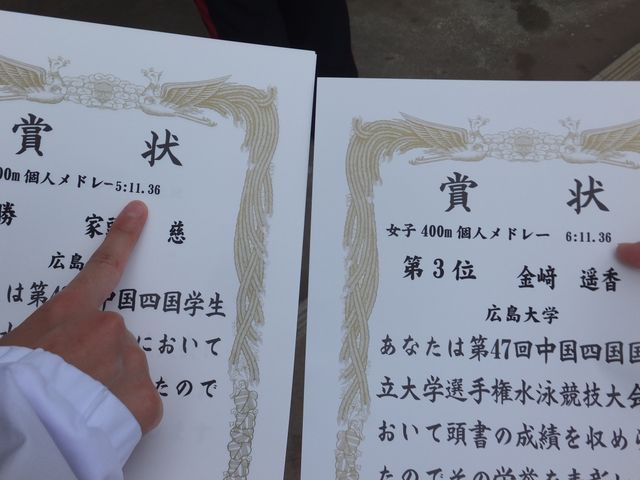 賞 状
00m 個人メドレー 5:11.36
勝 家 慈
広島
は第4 中国四国学生
において
たので
賞 状
女子 400m 個人メドレー 6:11.36
第3位 金﨑 遥香
広島大学
あなたは第47回中国四国国
立大学選手権水泳競技大会
おいて頭書の成績を収め
たのでその栄誉を表彰し